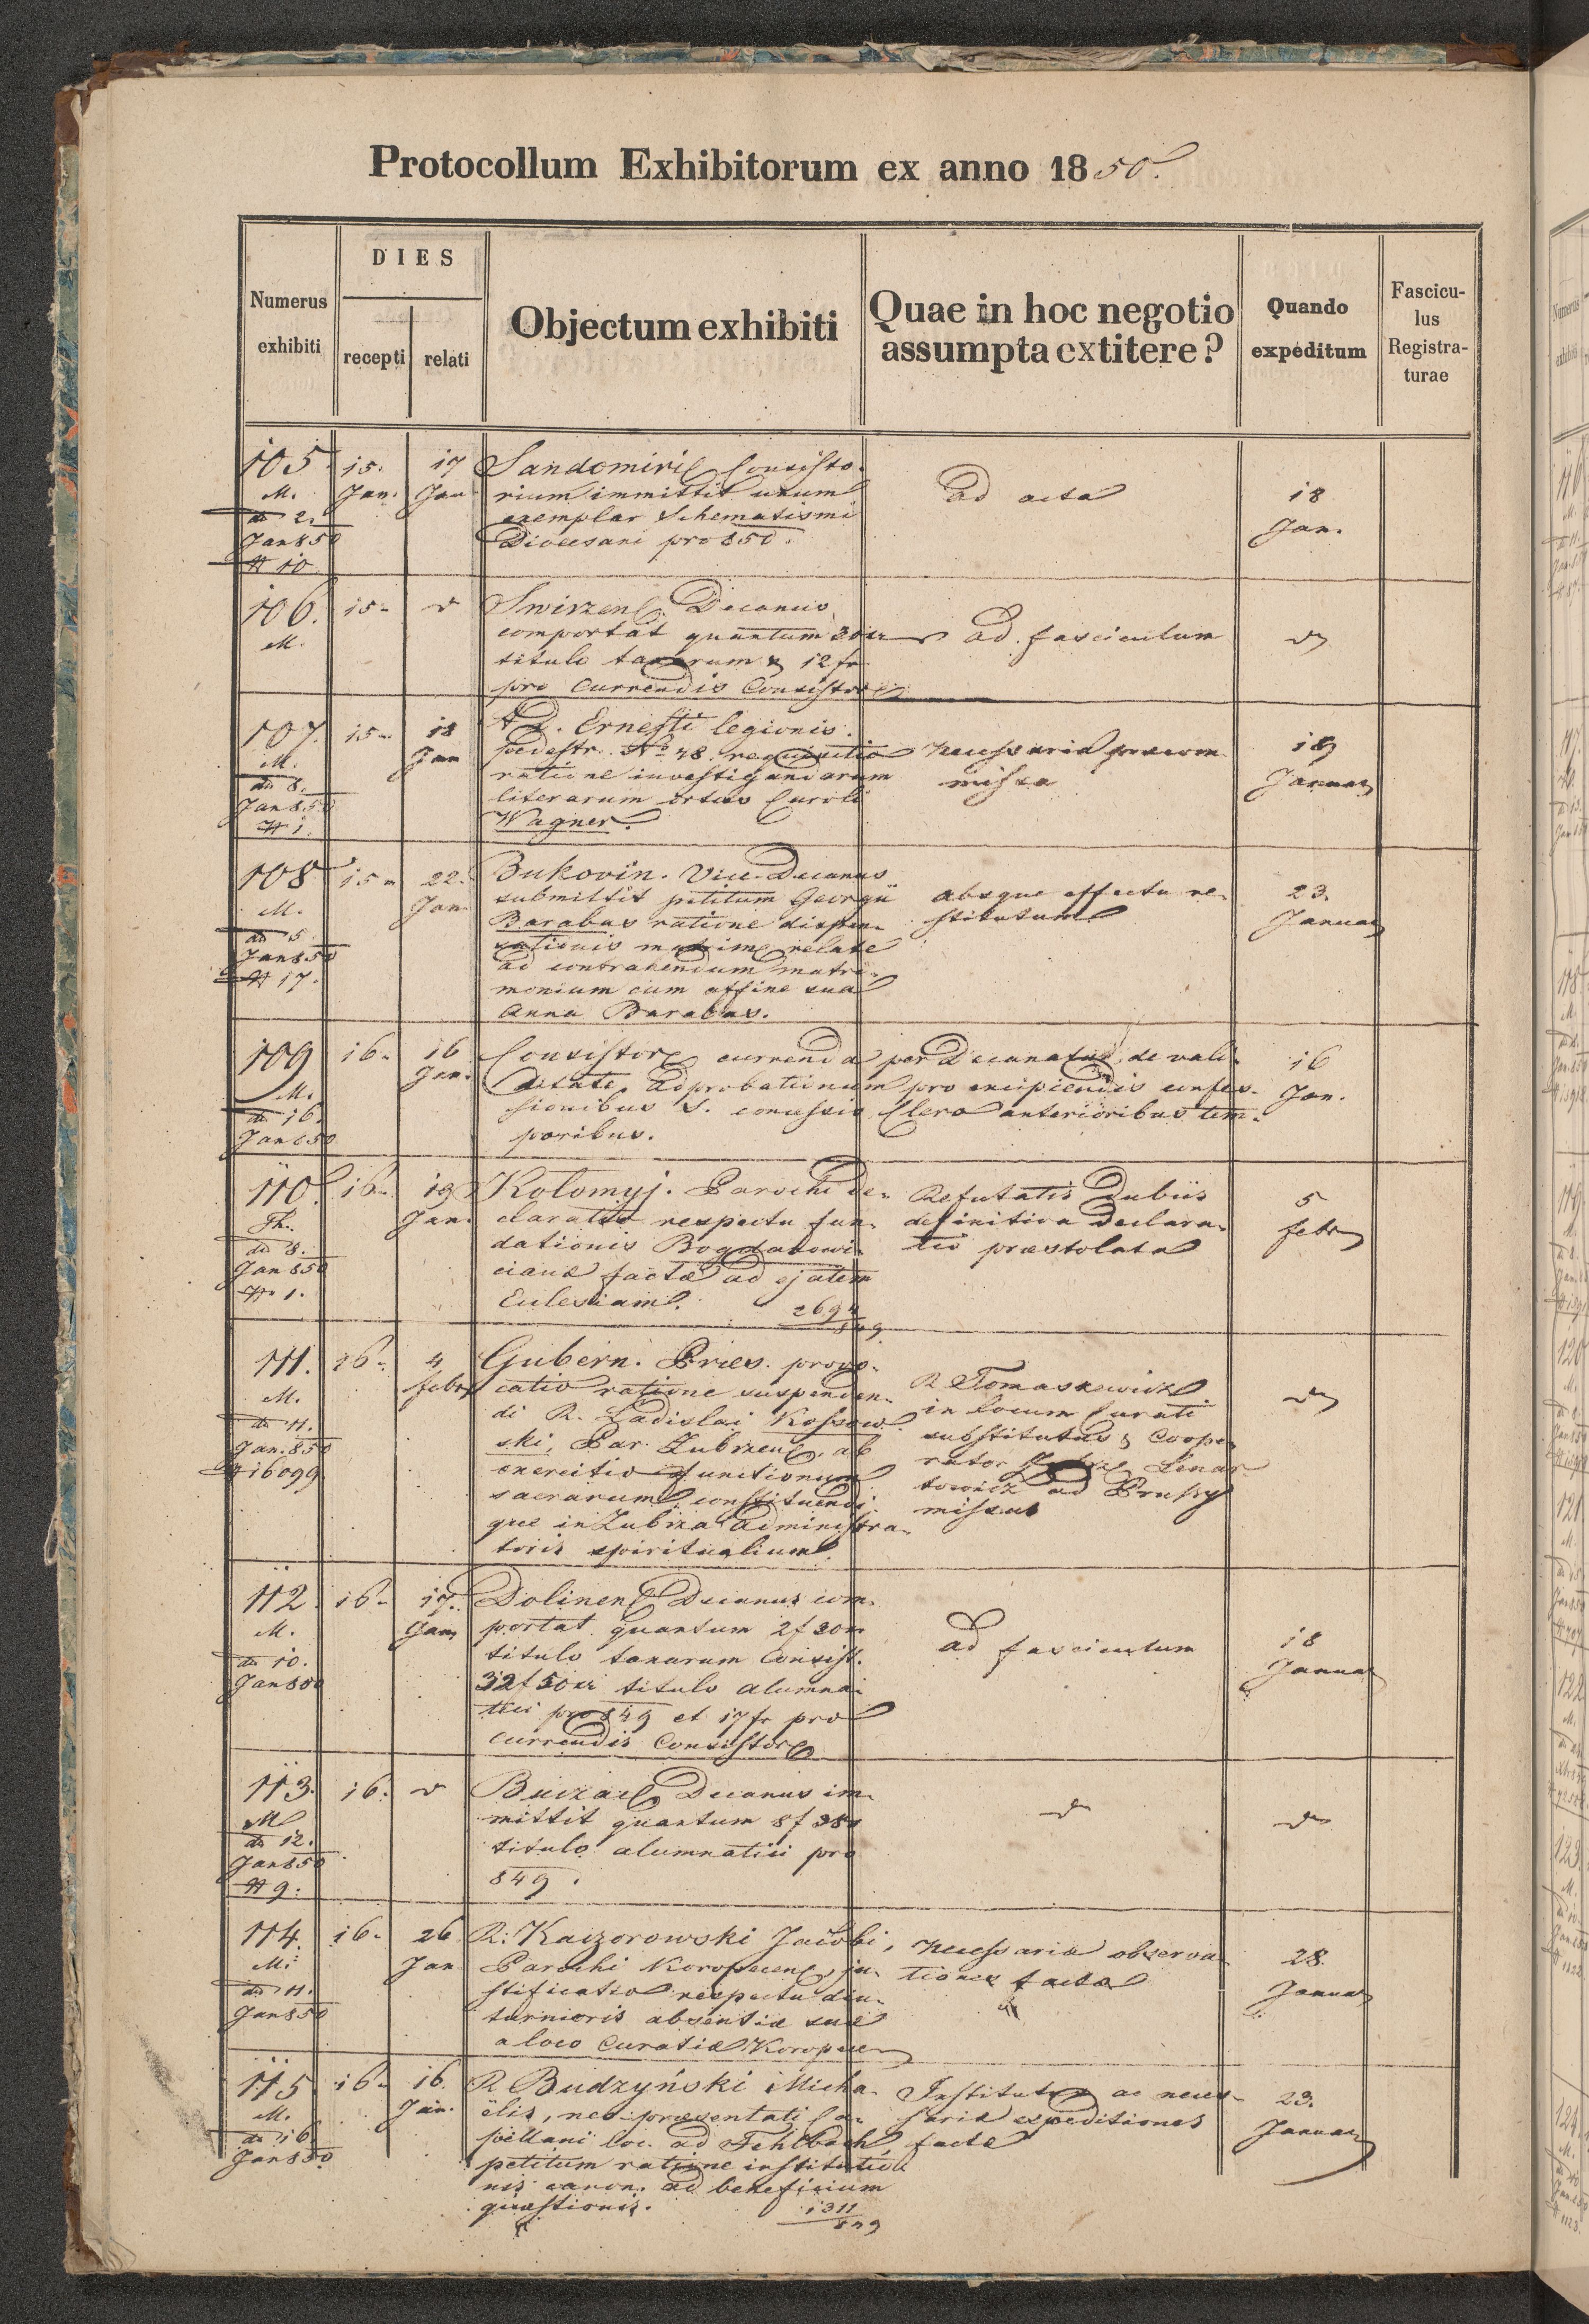 Protocollum Exhibitorum ex anno 1850.
Numerus exhibiti
DIES
recepti
relati
Objectum exhibiti
Quae in hoc negotio
assumpta extitere?
Quando
expeditum
Fascicu-
lus
Registra-
turae
105
M.
dd 2.
Jan 850
N 10
15.
Jan.
17
Jan
Sandomiri Consisto-
rium immittit unum
exemplar Schematismi
Dioecesani pro 850.
ad acta
18
Jan.
106.
M.
15
Swirzen. Decanus
comportat quantum
titulo taxarum & 12 fr
pro Currendis Consistor
ad fasciculum
107.
M.
dd 8.
Jan 850
N 1.
15
18
Jan
Ernesti legionis
pedestr. No 48. requisitio
ratione investigandarum
literarum ortus Caroli
Wagner.
Necessaria praeom-
missa
19
Januar
108
M.
dd 5
Jan 850
N 17.
15
22.
Jan
Bukovin. Vice-Decanus
submittit petitum Georgii
Barabas ratione dispen-
sationis
ad contrahendum matri-
monium cum affine sua
Anna Barabas.
absque effectu re-
stitutum
23.
Januar
109
M.
dd 16.
Jan 850
16
16
Jan.
Consistor currenda per Decanatus de vali-
ditate adprobationum pro excipiendis confes-
sionibus S. concessis Clero anterioribus tem-
poribus.
16
Jan.
110.
Th.
dd 8.
Jan 850
N 1.
16
19
Jan.
Kolomyj. Parochi de-
claratio respectu fun-
dationis Bogdanowi-
cianae factae ad ejatem
Ecclesiam.
849
Refutatis dubiis
definitiva declara-
tio praestolata
5
febr
111.
M.
dd 11.
Jan. 850
N 16099
16
4
febr
Gubern. Praes. provo-
catio ratione suspenden-
di R. Ladislai Kossow-
ski, Par. Zubrzen. ab
exercitio functionum
sacrarum, constituendi
que in Zubrza administra-
toris spiritualium.
R Tomaszewicz
in locum Curati
substitutus & Coope-
rator Lenar-
towicz ad Prussy
missus
112.
M.
dd 10.
Jan 850
16
17.
Jan
Dolinen Decanus com-
portat quantum 2 f 30
titulo taxarum Consist.
32 f 50 xr titulo alumna-
tici pro 849 et 17 fr pro
Currendis Consistor
ad fasciculum
18
Januar
113.
M
dd 12.
Jan 850
N 9.
16.
Buczac Decanus im-
mittit quantum 8 f
titulo alumnatici pro
849.
114.
M.
dd 11.
Jan 850
16
26
Jan
R. Kaczorowski Jacobi,
Parochi Koropecen, ju-
stificatio respectu diu-
turnioris absentiae suae
a loco Curatiae Koropecen
Necessariae observa-
tiones factae
28.
Januar
115
M.
dd 16.
Jan 850
16
16.
Jan.
R Budzyński Micha-
ëlis, neo-praesentati Ca-
pellani loc. ad Fehlbach
petitum ratione institutio-
nis canon. ad beneficium
quaestionis.
1311
849
Institutio ac neces-
sariae expeditiones
factae
23.
Januar